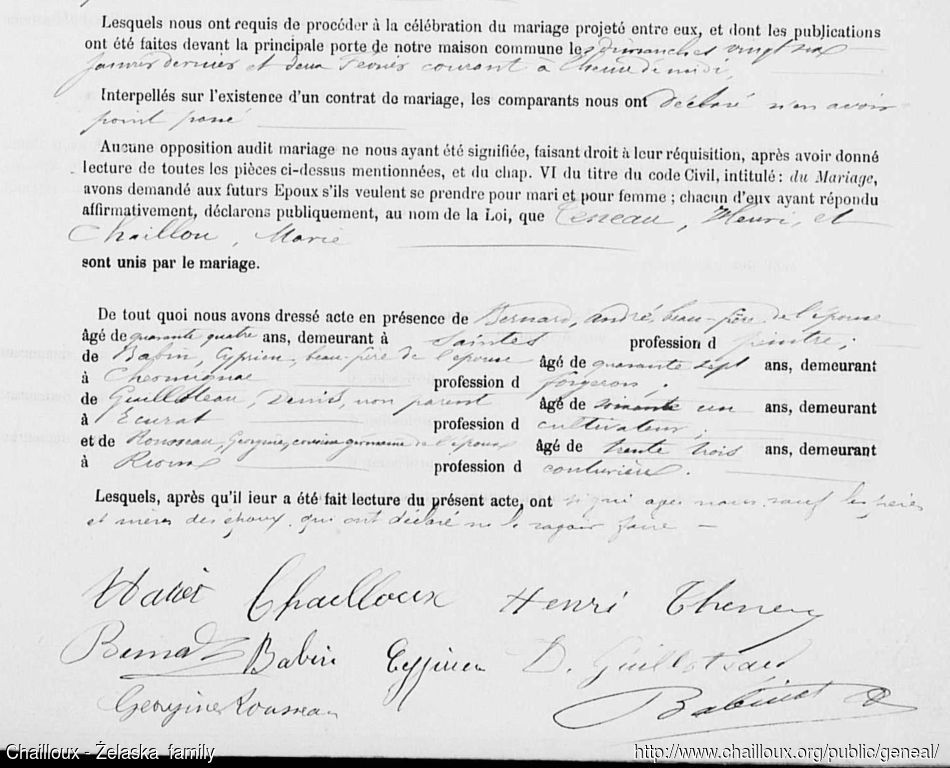 Lesquels nous ont requis de procéder à la célébration du mariage projeté entre eux, et dont les publications
ont été faites devant la principale porte de notre maison commune les dimanches vingt six
janvier dernier et deux Février courant à l'heure de midi,
Interpellés sur l'existence d'un contrat de mariage, les comparants nous ont déclaré n'en avoir
point passé
Aucune opposition audit mariage ne nous ayant été signifiée, faisant droit à leur réquisition, après avoir donné
lecture de toutes les pièces ci-dessus mentionnées, et du chap. VI du titre du code Civil, intitulé : du Mariage,
avons demandé aux futurs Epoux s'ils veulent se prendre pour mari et pour femme ; chacun d'eux ayant répondu
affirmativement, déclarons publiquement, au nom de la Loi, que Teneau, Henri, et
Chaillou, Marie
sont unis par le mariage.
De tout quoi nous avons dressé acte en présence de Bernard, André, beau-père de l'épouse
âgé de quarante quatre ans, demeurant à Saintes profession d peintre ;
de Babin, Cyprien, beau-père de l'épouse âgé de quarante sept ans, demeurant
à Chermignac profession d forgeron ;
de Guilloteau, Denis, non parent âgé de soixante un ans, demeurant
à Ecurat profession d cultivateur ;
et de Rousseau, Georgine, cousine germaine de l'époux âgé de trente trois ans, demeurant
à profession d couturière.
Lesquels, après qu'il leur a été fait lecture du présent acte, ont signé avec nous sauf les pères
et mères des époux qui ont déclaré ne le savoir faire
Chailloux Henri
Bernard Babin Cyprien D. Guilloteau
Georgine Rousseau
Chailloux - Żelaska family http://www.chailloux.org/public/geneal/